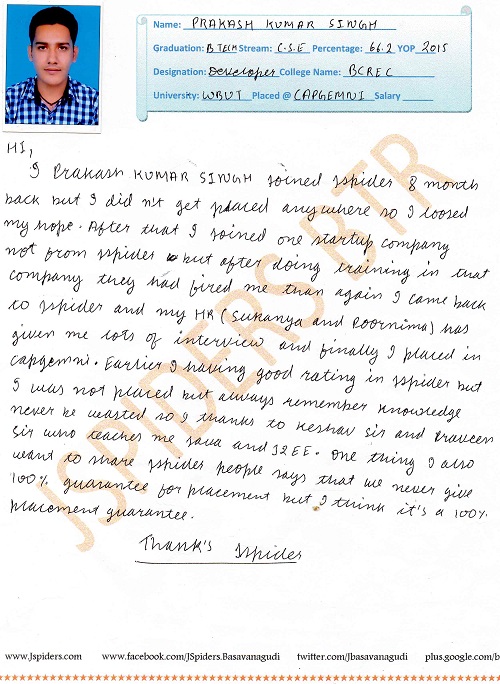 Name: PRAKASH KUMAR SINGH
Graduation: B TECH Stream: C.S.E Percentage: 66.2 YOP 2015
Designation: Developer College Name: BCREC
University: WBUT Placed @ CAPGEMNI Salary
HI,
I Prakash KUMAR SINGH joined Jspider 8 month
back but I did n't get placed anywhere so I loosed
my hope. After that I joined one startup company
not from Jspider but after doing training in that
company they had fired me than again I came back
to Jspider and my HR (Sukanya and Poornima) has
given me lots of interview and finally I placed in
capgemni. Earlier I having good rating in Jspider but
I was not placed but always remember knowledge
never be wasted so I thanks to Keshav Sir and Praveen
Sir who teaches me Java and J2EE. One thing I also
want to share Jspides people says that we never give
100% guarantee for placement but I think it's a 100%
placement guarantee.
Thank's Jspider
JSPIDERS BTR
www.Jspiders.com www.facebook.com/JSpiders.Basavanagudi twitter.com/Jbasavanagudi plus.google.com/b